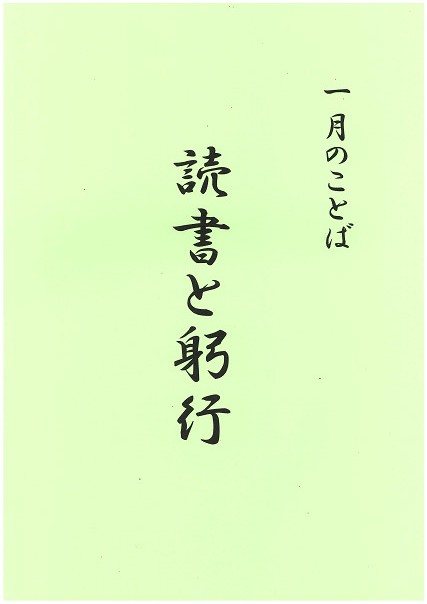 一月のことば
読書と躬行